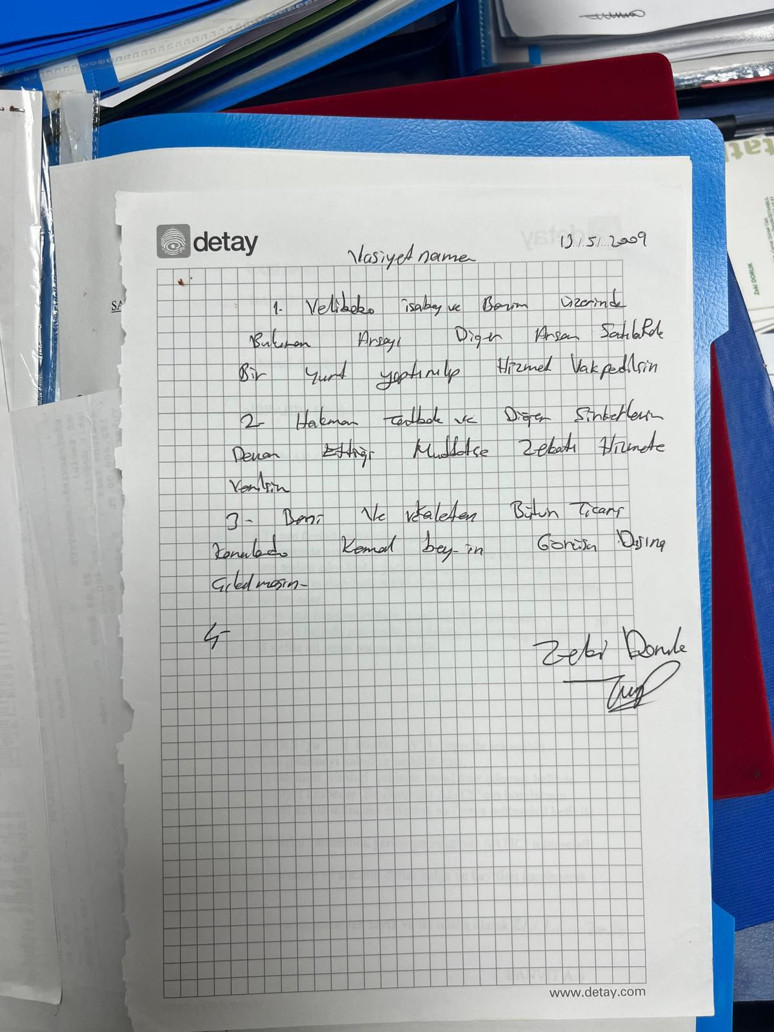 detay
13/5/2009
Vasiyet name
1- Velibaba isabey ve Benim üzerinde
Bulunan Arsayı Diger Arsam Satılabde
Bir yurt yaptırılıp Hizmet Vakpedilsin
2- Hakman ve Diger Sirketlerin
Devam Ettigi Muddetce Zekatı Hizmete
Verilsin
3- Beni Ve vekaleten Bütün Ticarı
Konularda Kemal bey-in Görüsü Dısına
Cıkılmasın-
4-
Zeki
www.detay.com